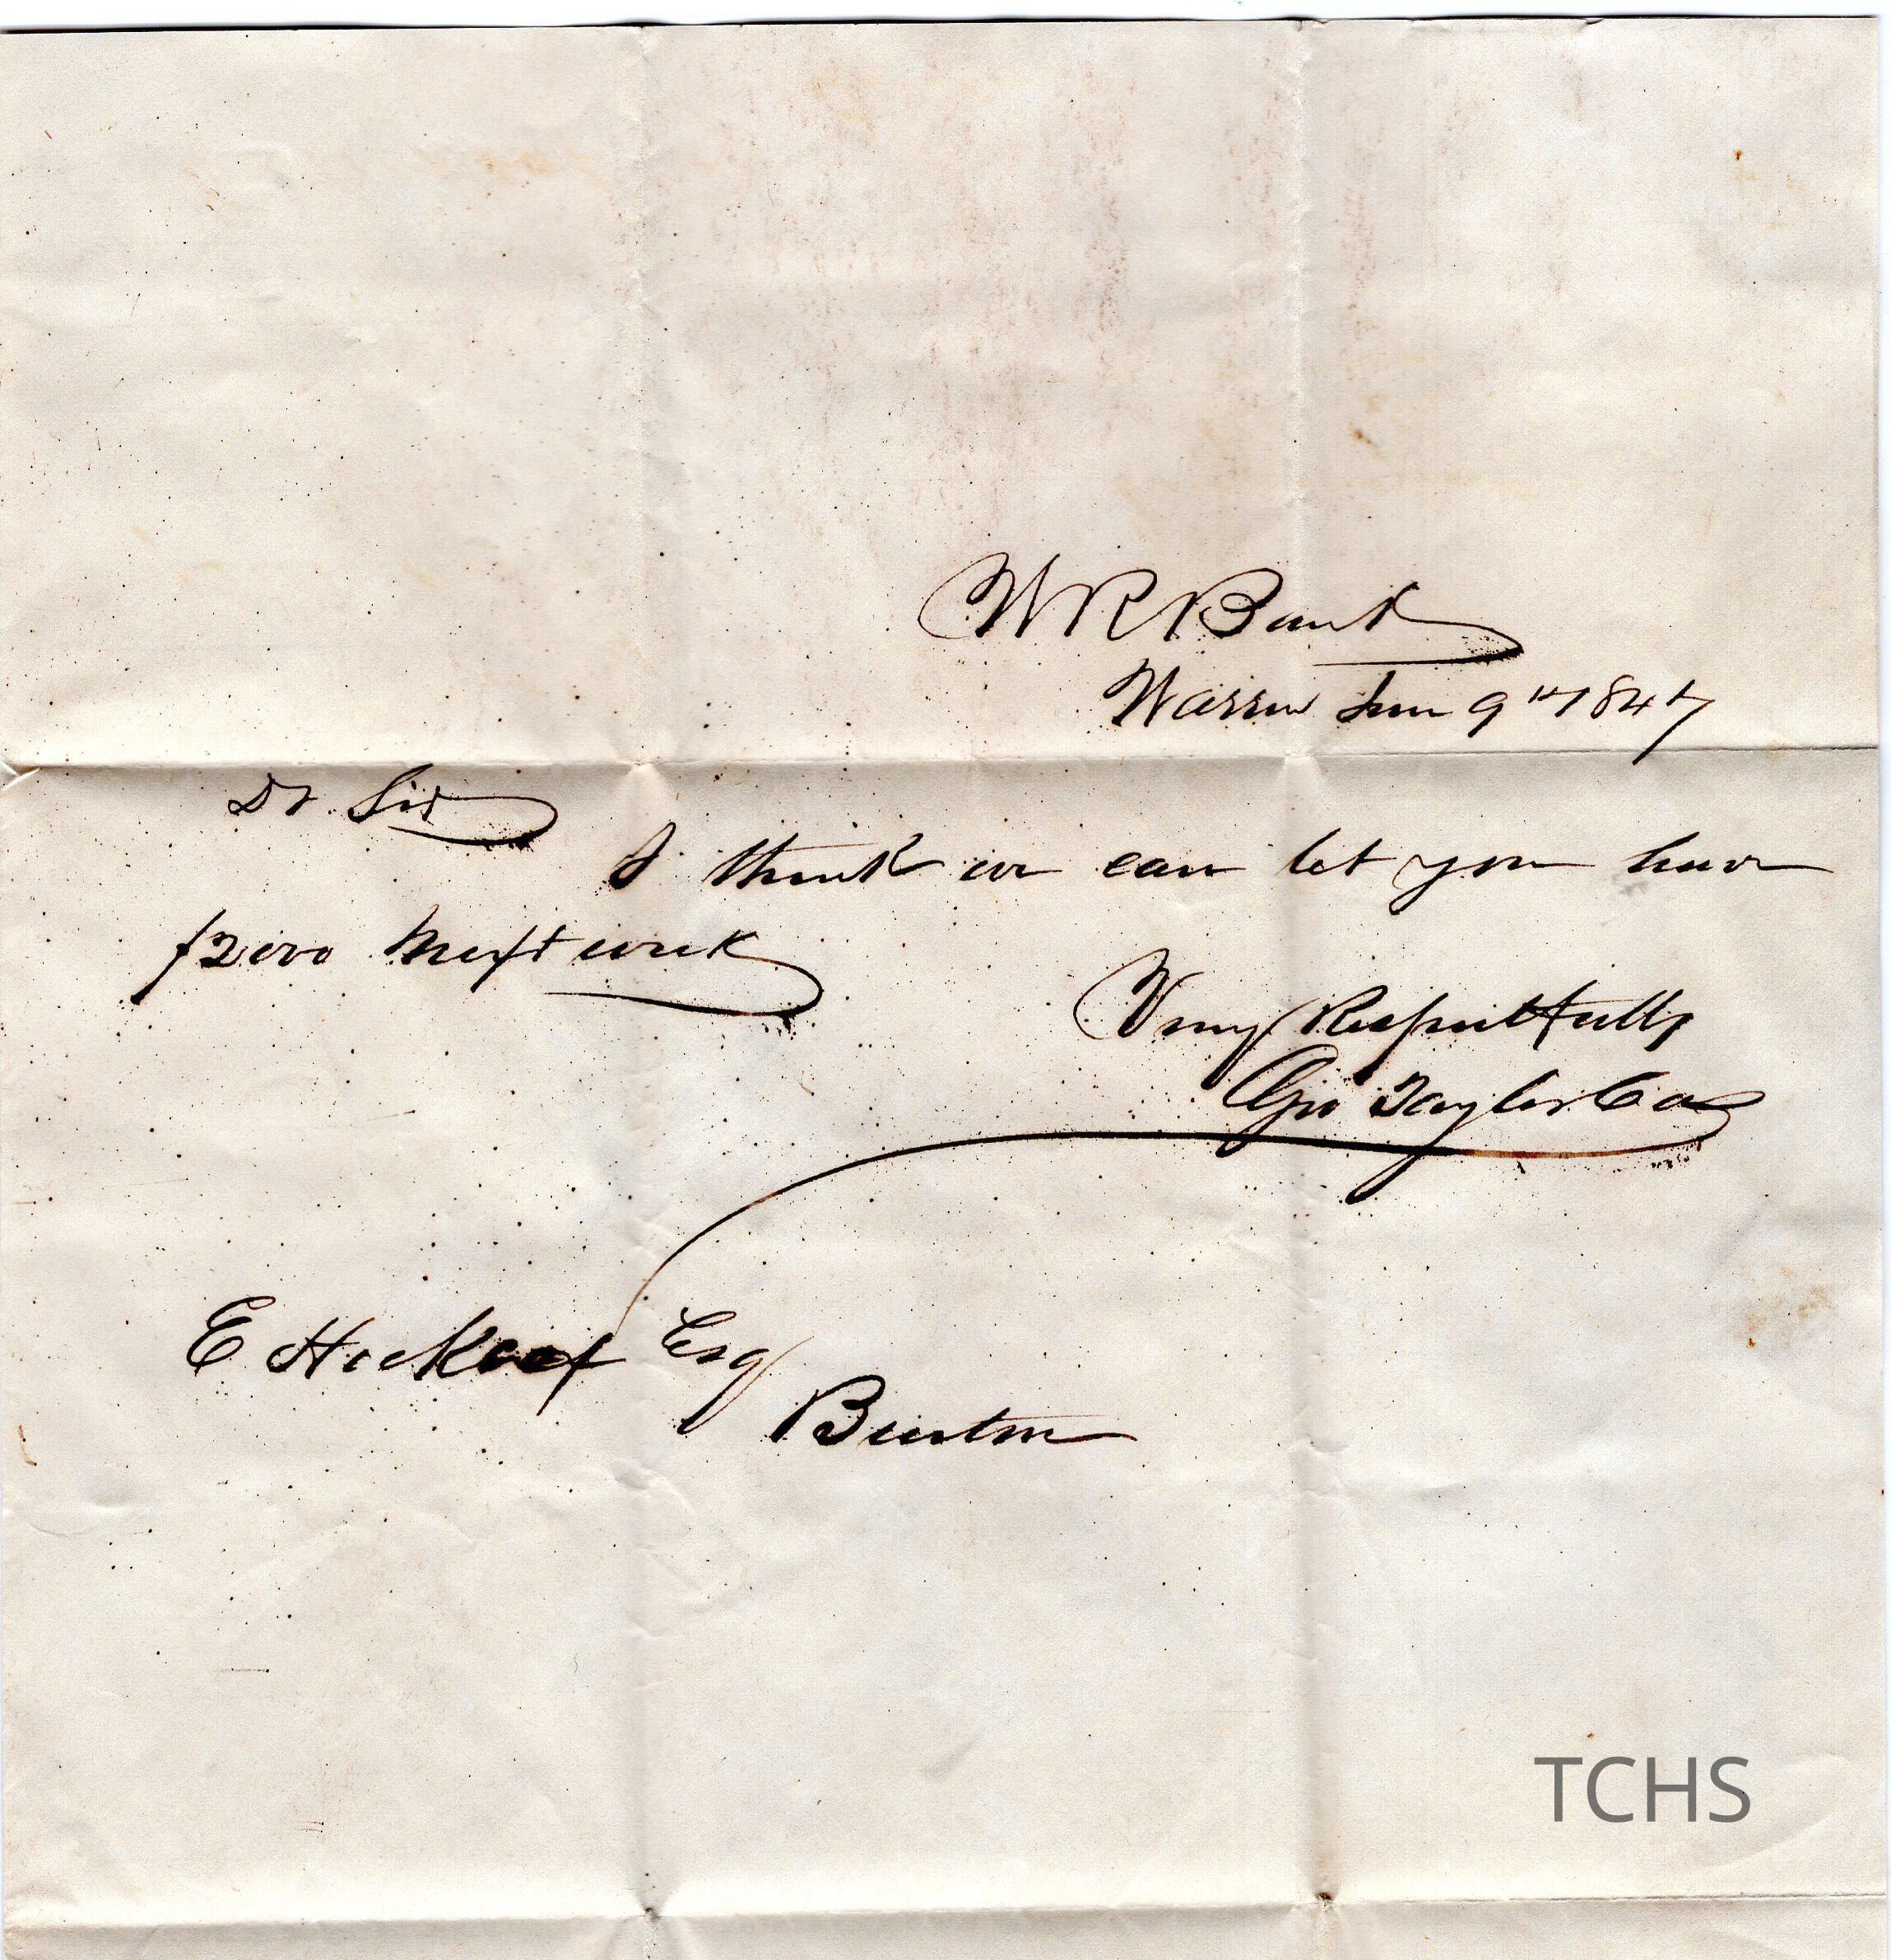 W R Bank
Warren Jun 9th 1847
Dr Sir
I think we can let you have
$2000 Next week
Very Respectfully
Geo Taylor Ca
E Esq
Burton
TCHS